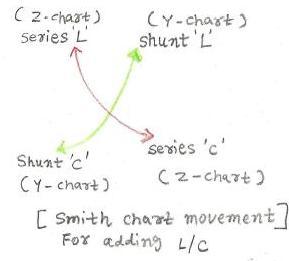 (Z-chart)
series 'L'
(Y-chart)
shunt 'L'
Shunt 'c'
(Y-chart)
series 'c'
(Z-chart)
[Smith chart movement]
For adding L/C